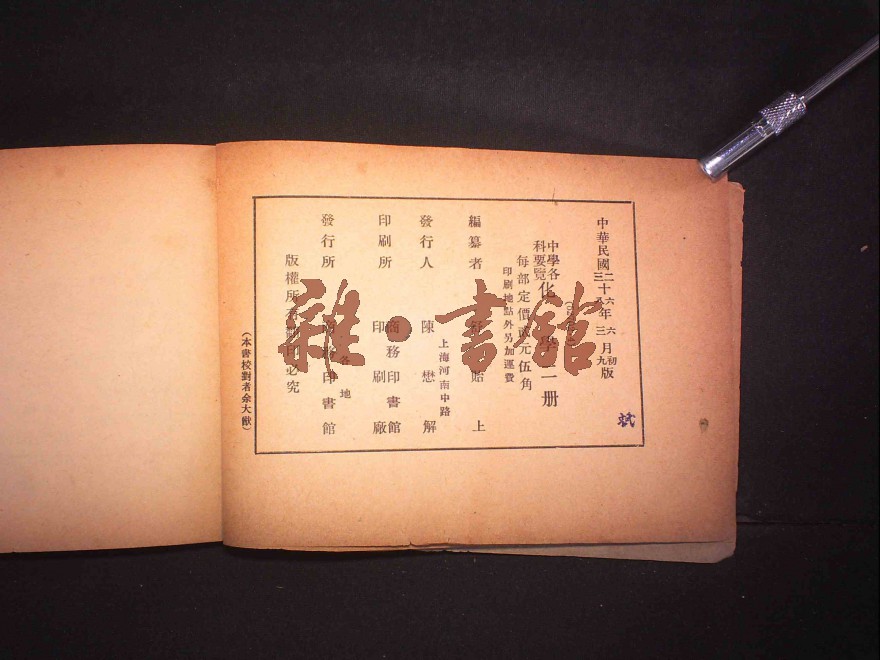 中華民國二十六年六月初版
三十八年三月九版
中學各科要覽化學二册
每部定價貳元伍角
印刷地點外另加運費
編纂者 貽上
發行人 陳懋解
上海河南中路
印刷所 商務印書館印刷廠
發行所 商務印書館
各地
版權所有翻印必究
(本書校對者余大猷)
斌
雜·書館